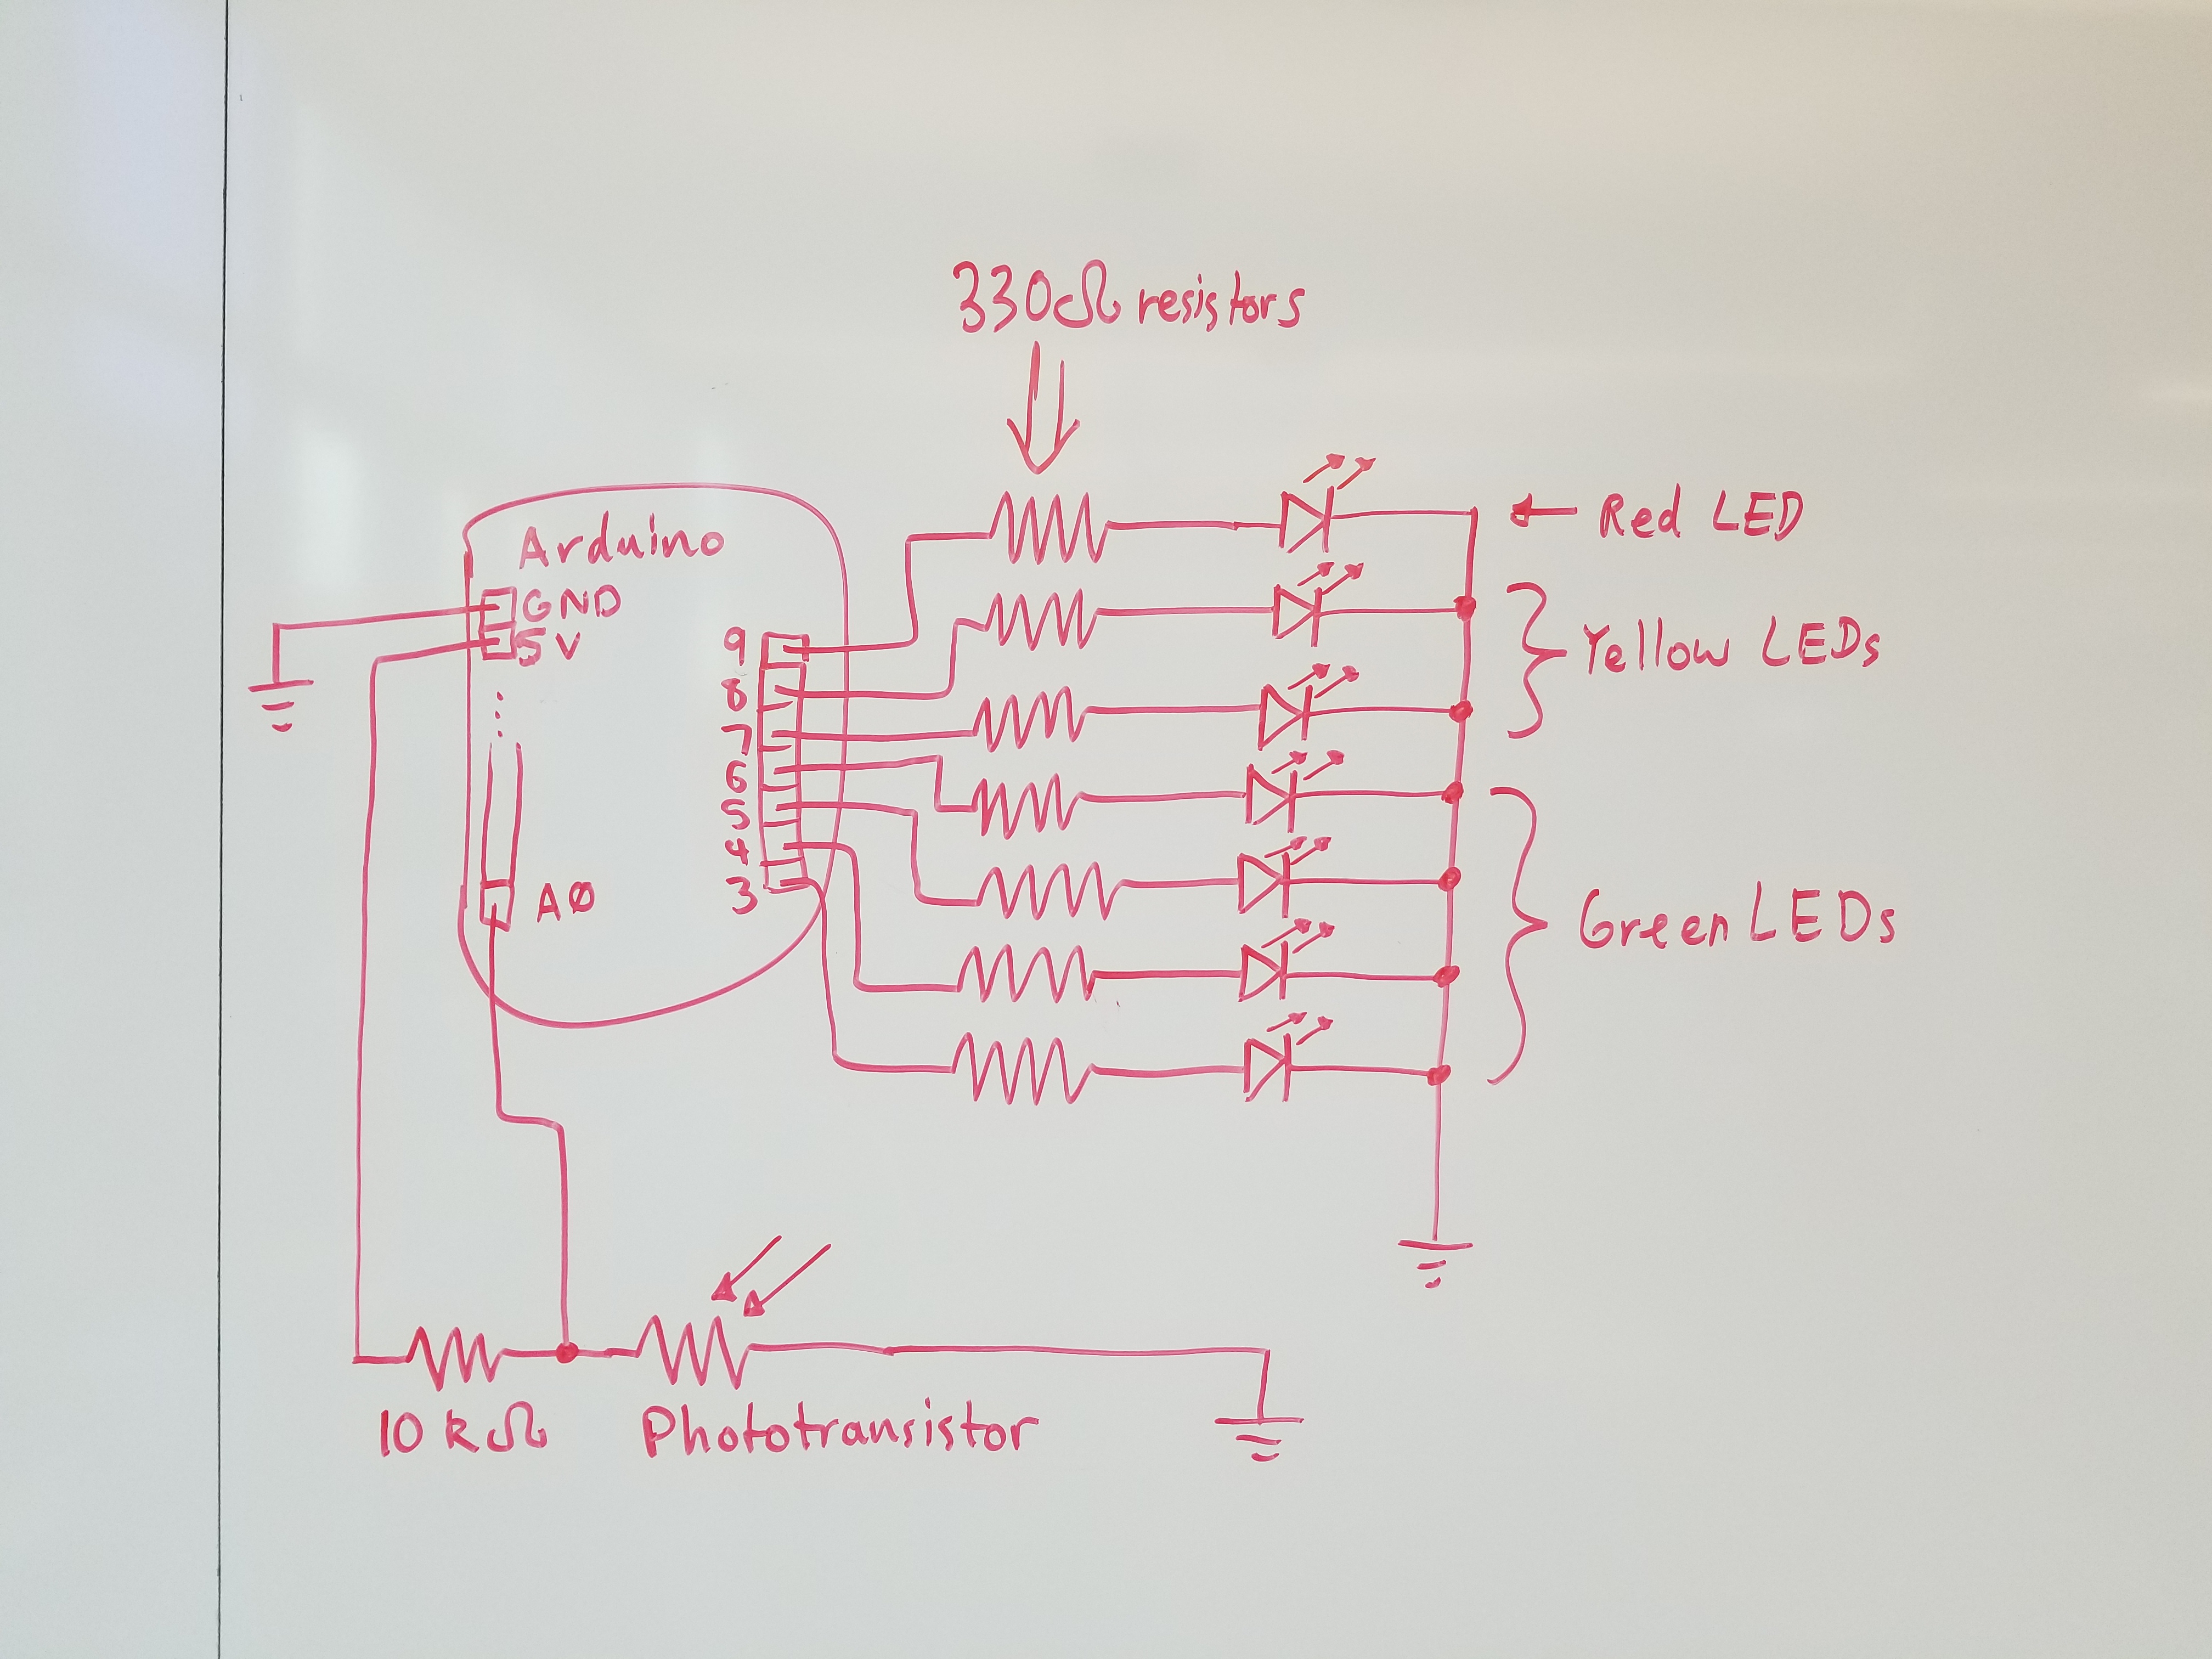 330Ω resistors
Arduino
GND
5V
9
8
7
6
5
4
3
AØ
Red LED
Yellow LEDs
Green LEDs
10 kΩ
Phototransistor